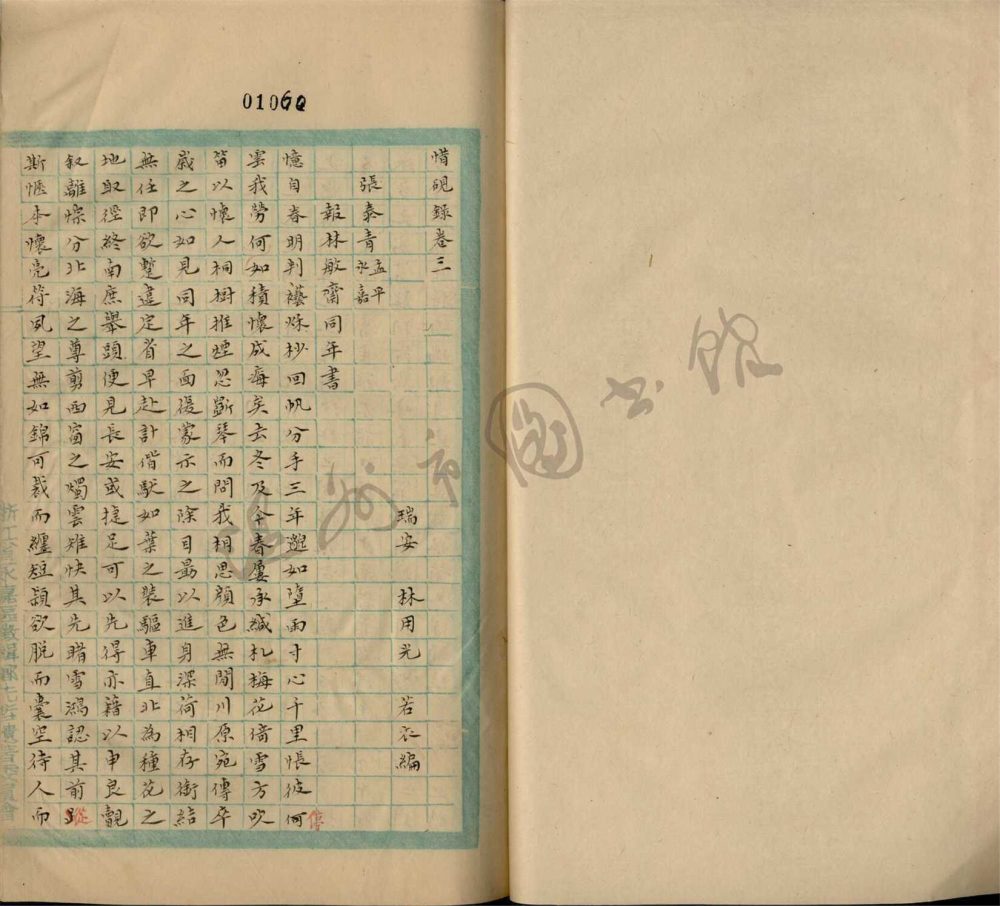 01060
惜硯錄卷三
瑞安 林用光 若衣編
張泰青 孟平 永嘉
報林敏齋同年書
憶自春明判襼烁杪回帆分手三年邈如墮雨寸心千里悵彼何
雲我勞何如積懷成痗矣去冬及今春屢承緘札梅花倚雪方吹
笛以懷人桐樹推煙忍斷琴而問我相思顏色無間川原宛傳卒
歲之心如見同年之面復蒙示之除目勗以進身深荷相存銜結
無任即欲蹔違定省早赴計偕馱如葉之裝驅車直北為種花之
地取徑終南庶舉頭便見長安或捷足可以先得亦藉以申良覿
叙離悰分北海之尊剪西窗之燭雲雉快其先睹雪鴻認其前
斯愜本懷亮荷夙望無如錦可裁而纑短穎欲脫而囊空待人而
停
蹤
溫州市圖書館